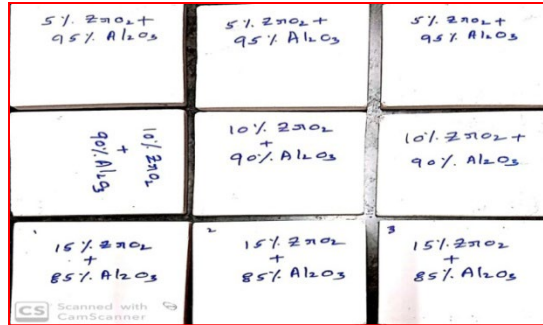 5%. ZrO₂ +
95%. Al₂O₃
5%. ZrO₂ +
95%. Al₂O₃
5%. ZrO₂ +
95%. Al₂O₃
10%. ZrO₂
+
90%. Al₂O₃
10%. ZrO₂
+
90%. Al₂O₃
10%. ZrO₂ +
90%. Al₂O₃
1
15%. ZrO₂
+
85%. Al₂O₃
2
15%. ZrO₂
+
85%. Al₂O₃
3
15%. ZrO₂
+
85%. Al₂O₃
CS Scanned with
CamScanner